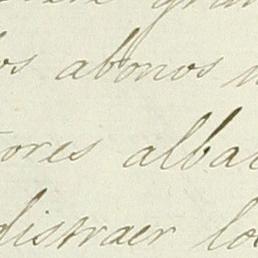 os abonos
ores alba
distraer lo